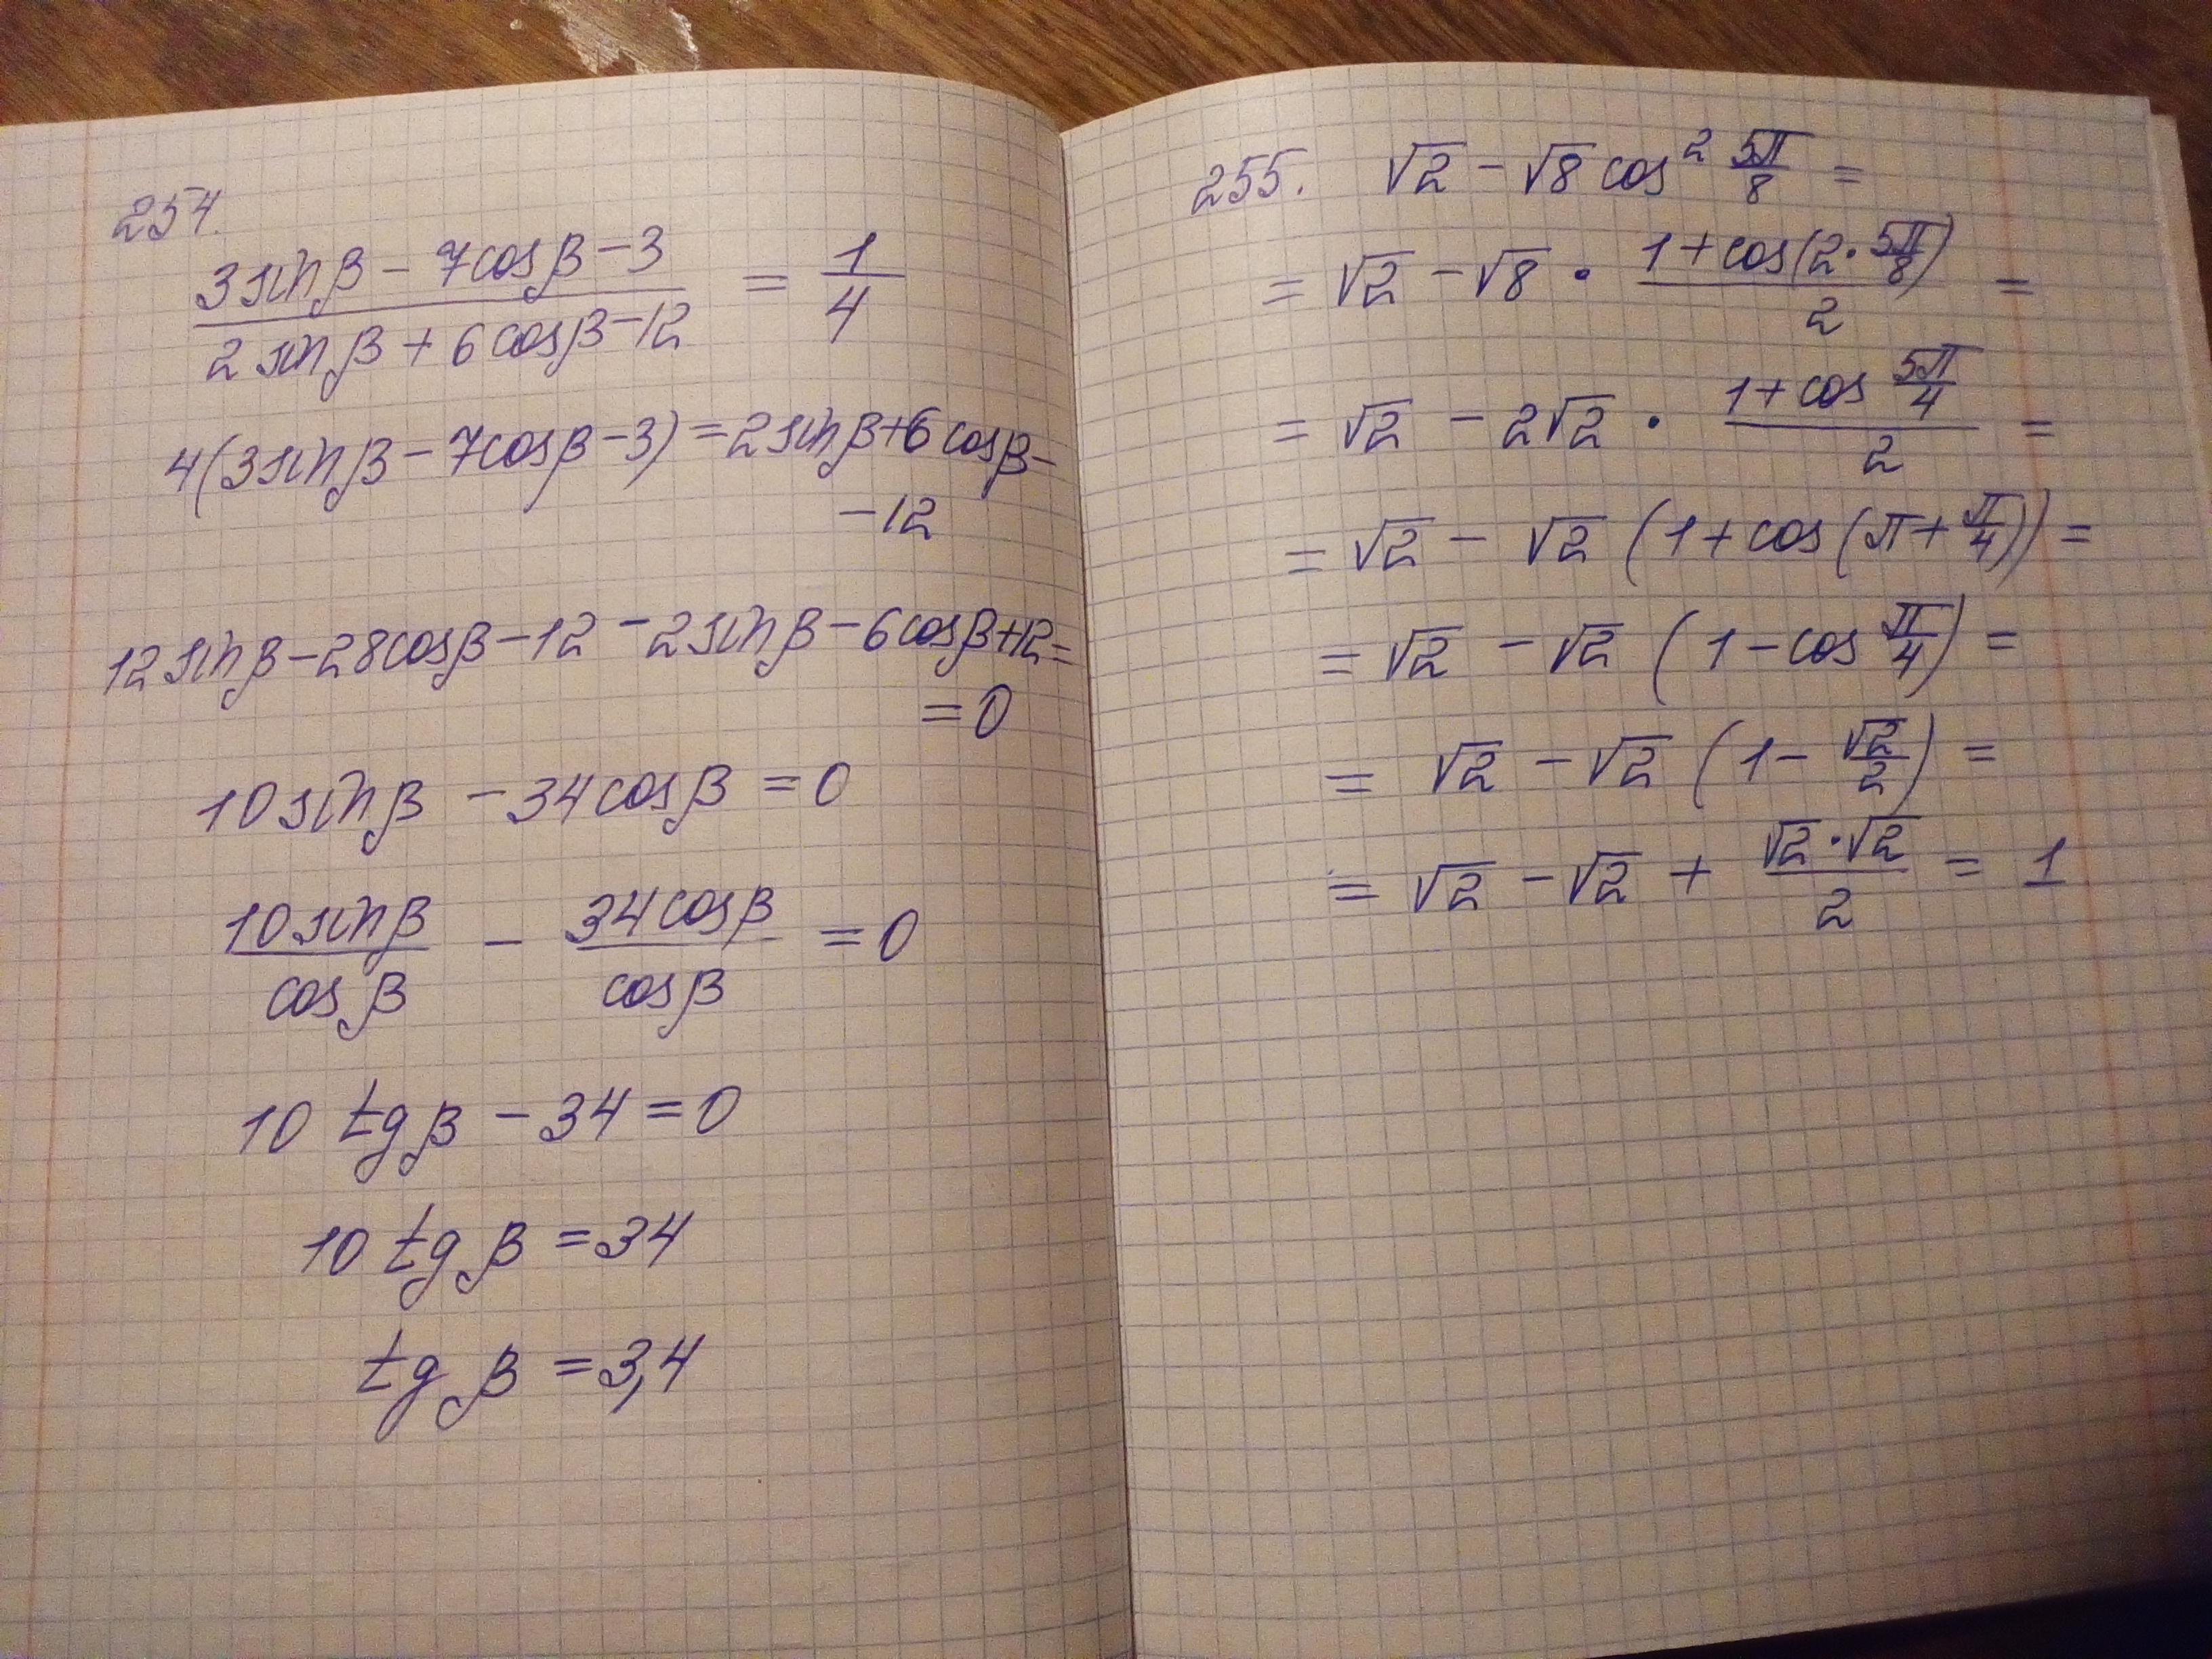 254.
3sinβ - 7cosβ - 3 / 2sinβ + 6cosβ - 12 = 1/4
4(3sinβ - 7cosβ - 3) = 2sinβ + 6cosβ -
- 12
12sinβ - 28cosβ - 12 - 2sinβ - 6cosβ + 12 =
= 0
10sinβ - 34cosβ = 0
10sinβ / cosβ - 34cosβ / cosβ = 0
10 tgβ - 34 = 0
10 tgβ = 34
tgβ = 3,4
255. √2 - √8 cos² 5π/8 =
= √2 - √8 · 1 + cos(2 · 5π/8) / 2 =
= √2 - 2√2 · 1 + cos 5π/4 / 2 =
= √2 - √2 (1 + cos(π + π/4)) =
= √2 - √2 (1 - cos π/4) =
= √2 - √2 (1 - √2/2) =
= √2 - √2 + √2 · √2 / 2 = 1